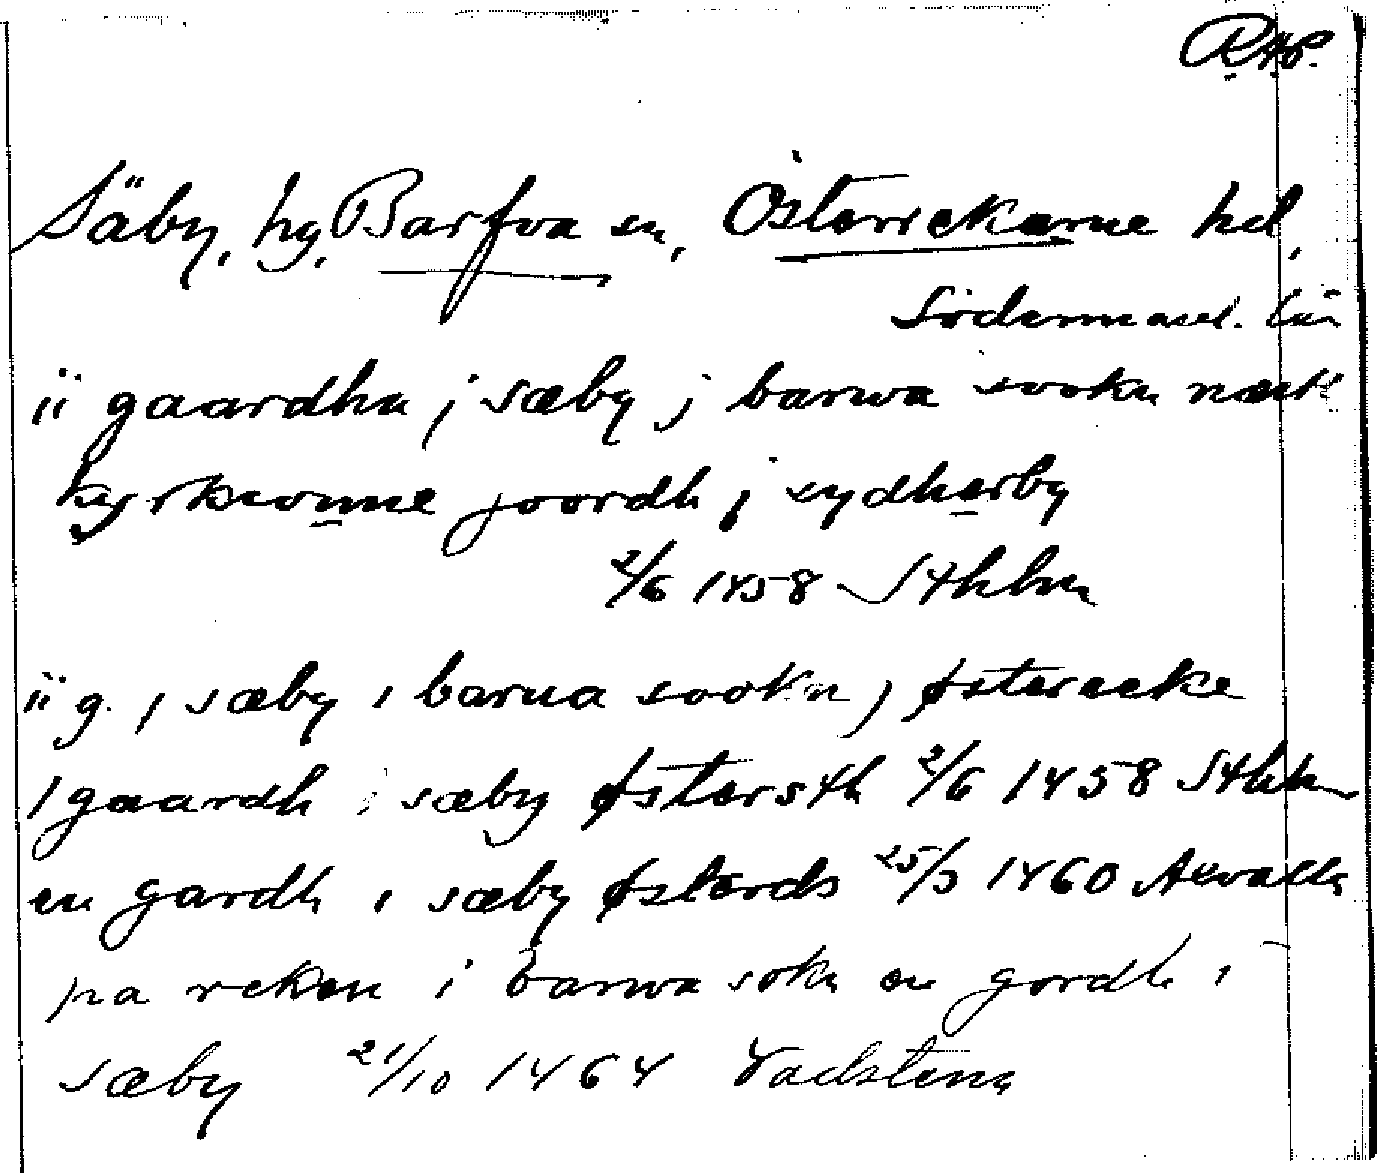 RAP.
Säby, hg. Barfva sn, Österrekarne hd,
Södermanl. län
ii gaardha j sæby j barwa sookn næst
kyrkionne joordh j sydherby
2/6 1458 Sthlm
ii g. j sæby i barua sookn j østerreke
1 gaardh i sæby østersth 2/6 1458 Sthlm
en gardh i sæby østerds 25/3 1460 Axvalla
pa reken i barwa sokn en gordh i
sæby 21/10 1464 Vadstena